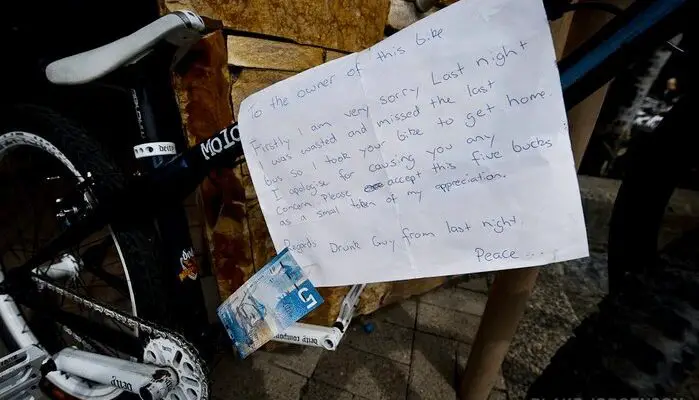 To the owner of this bike
Firstly I am very sorry Last night
I was wasted and missed the last
bus so I took your bike to get home.
I apologise for causing you any
concern. Please accept this five bucks
as a small token of my appreciation.
Regards Drunk Guy from last night.
Peace...
MOTO
beity
5